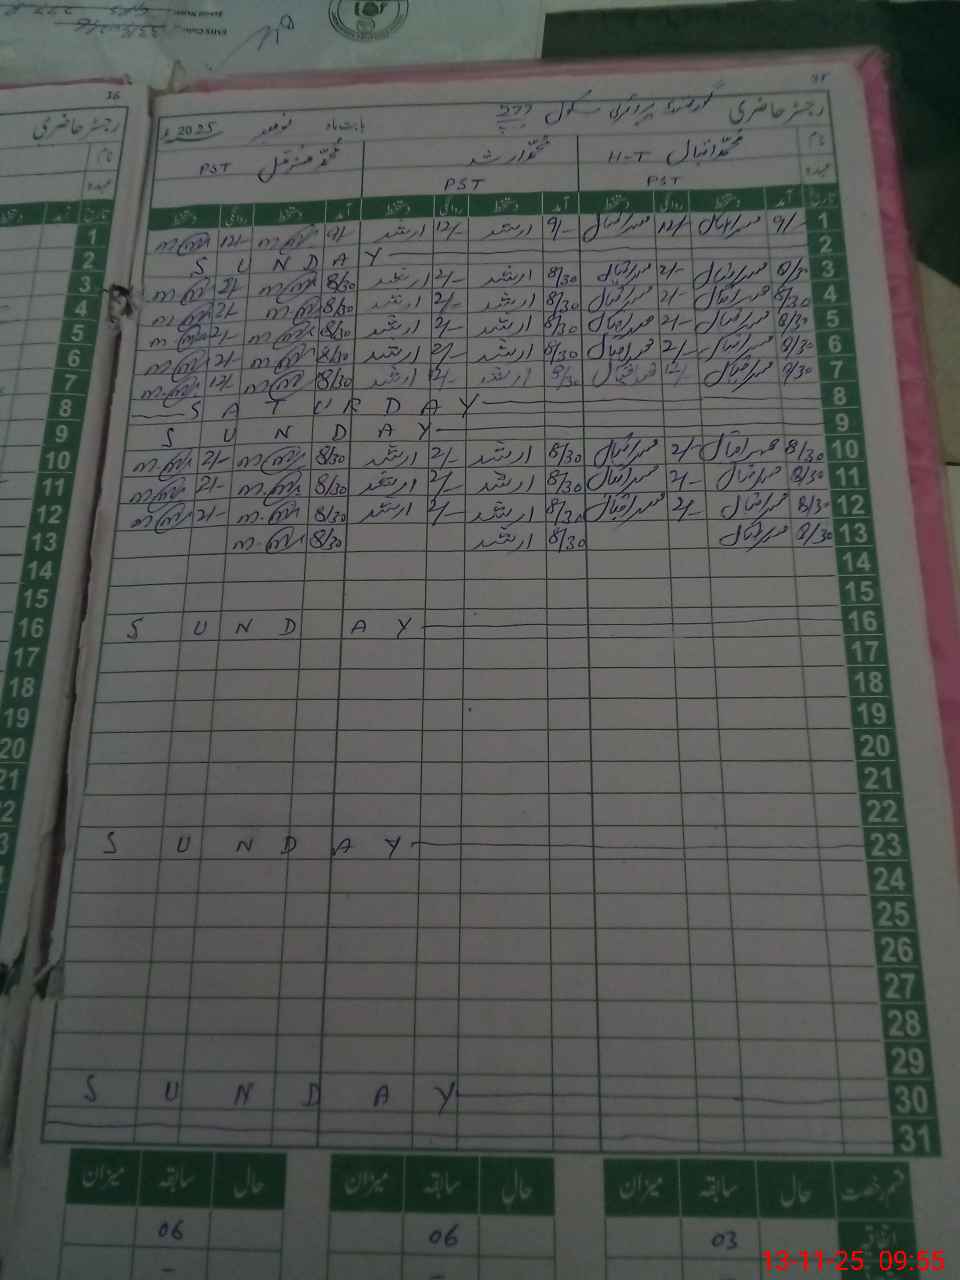 36
رجسٹر حاضری
نام
عہدہ
دستخط آمد تاریخ
1
2
3
4
5
6
7
8
9
10
11
12
13
14
15
16
17
18
19
20
21
22
رجسٹر حاضری گورنمنٹ پرائمری سکول 277 بابت ماہ نومبر 2025ء
نام محمد اقبال H-T محمد ارشد محمد مزمل PST
عہدہ PST PST
تاریخ آمد دستخط روانگی دستخط آمد دستخط روانگی دستخط آمد دستخط روانگی دستخط
1 9/- محمد اقبال 12/- محمد اقبال 9/- ارشد 12/- ارشد 9/- 12/-
2 SUNDAY
3 8/30 محمد اقبال 2/- محمد اقبال 8/30 ارشد 2/- ارشد 8/30 2/-
4 8/30 محمد اقبال 2/- محمد اقبال 8/30 ارشد 2/- ارشد 8/30 2/-
5 8/30 محمد اقبال 2/- محمد اقبال 8/30 ارشد 2/- ارشد 8/30 2/-
6 8/30 محمد اقبال 2/- محمد اقبال 8/30 ارشد 2/- ارشد 8/30 2/-
7 8/30 محمد اقبال 12/- محمد اقبال 8/30 ارشد 12/- ارشد 8/30 12/-
8 SATURDAY
9 SUNDAY
10 8/30 محمد اقبال 2/- محمد اقبال 8/30 ارشد 2/- ارشد 8/30 2/-
11 8/30 محمد اقبال 2/- محمد اقبال 8/30 ارشد 2/- ارشد 8/30 2/-
12 8/30 محمد اقبال 2/- محمد اقبال 8/30 ارشد 2/- ارشد 8/30 2/-
13 8/30 محمد اقبال 8/30 ارشد 8/30
14
15
16 SUNDAY
17
18
19
20
21
22
23 SUNDAY
24
25
26
27
28
29
30 SUNDAY
31
قسم رخصت حال سابقہ میزان حال سابقہ میزان حال سابقہ میزان
اتفاقیہ 03 06 06
13-11-25 09:55